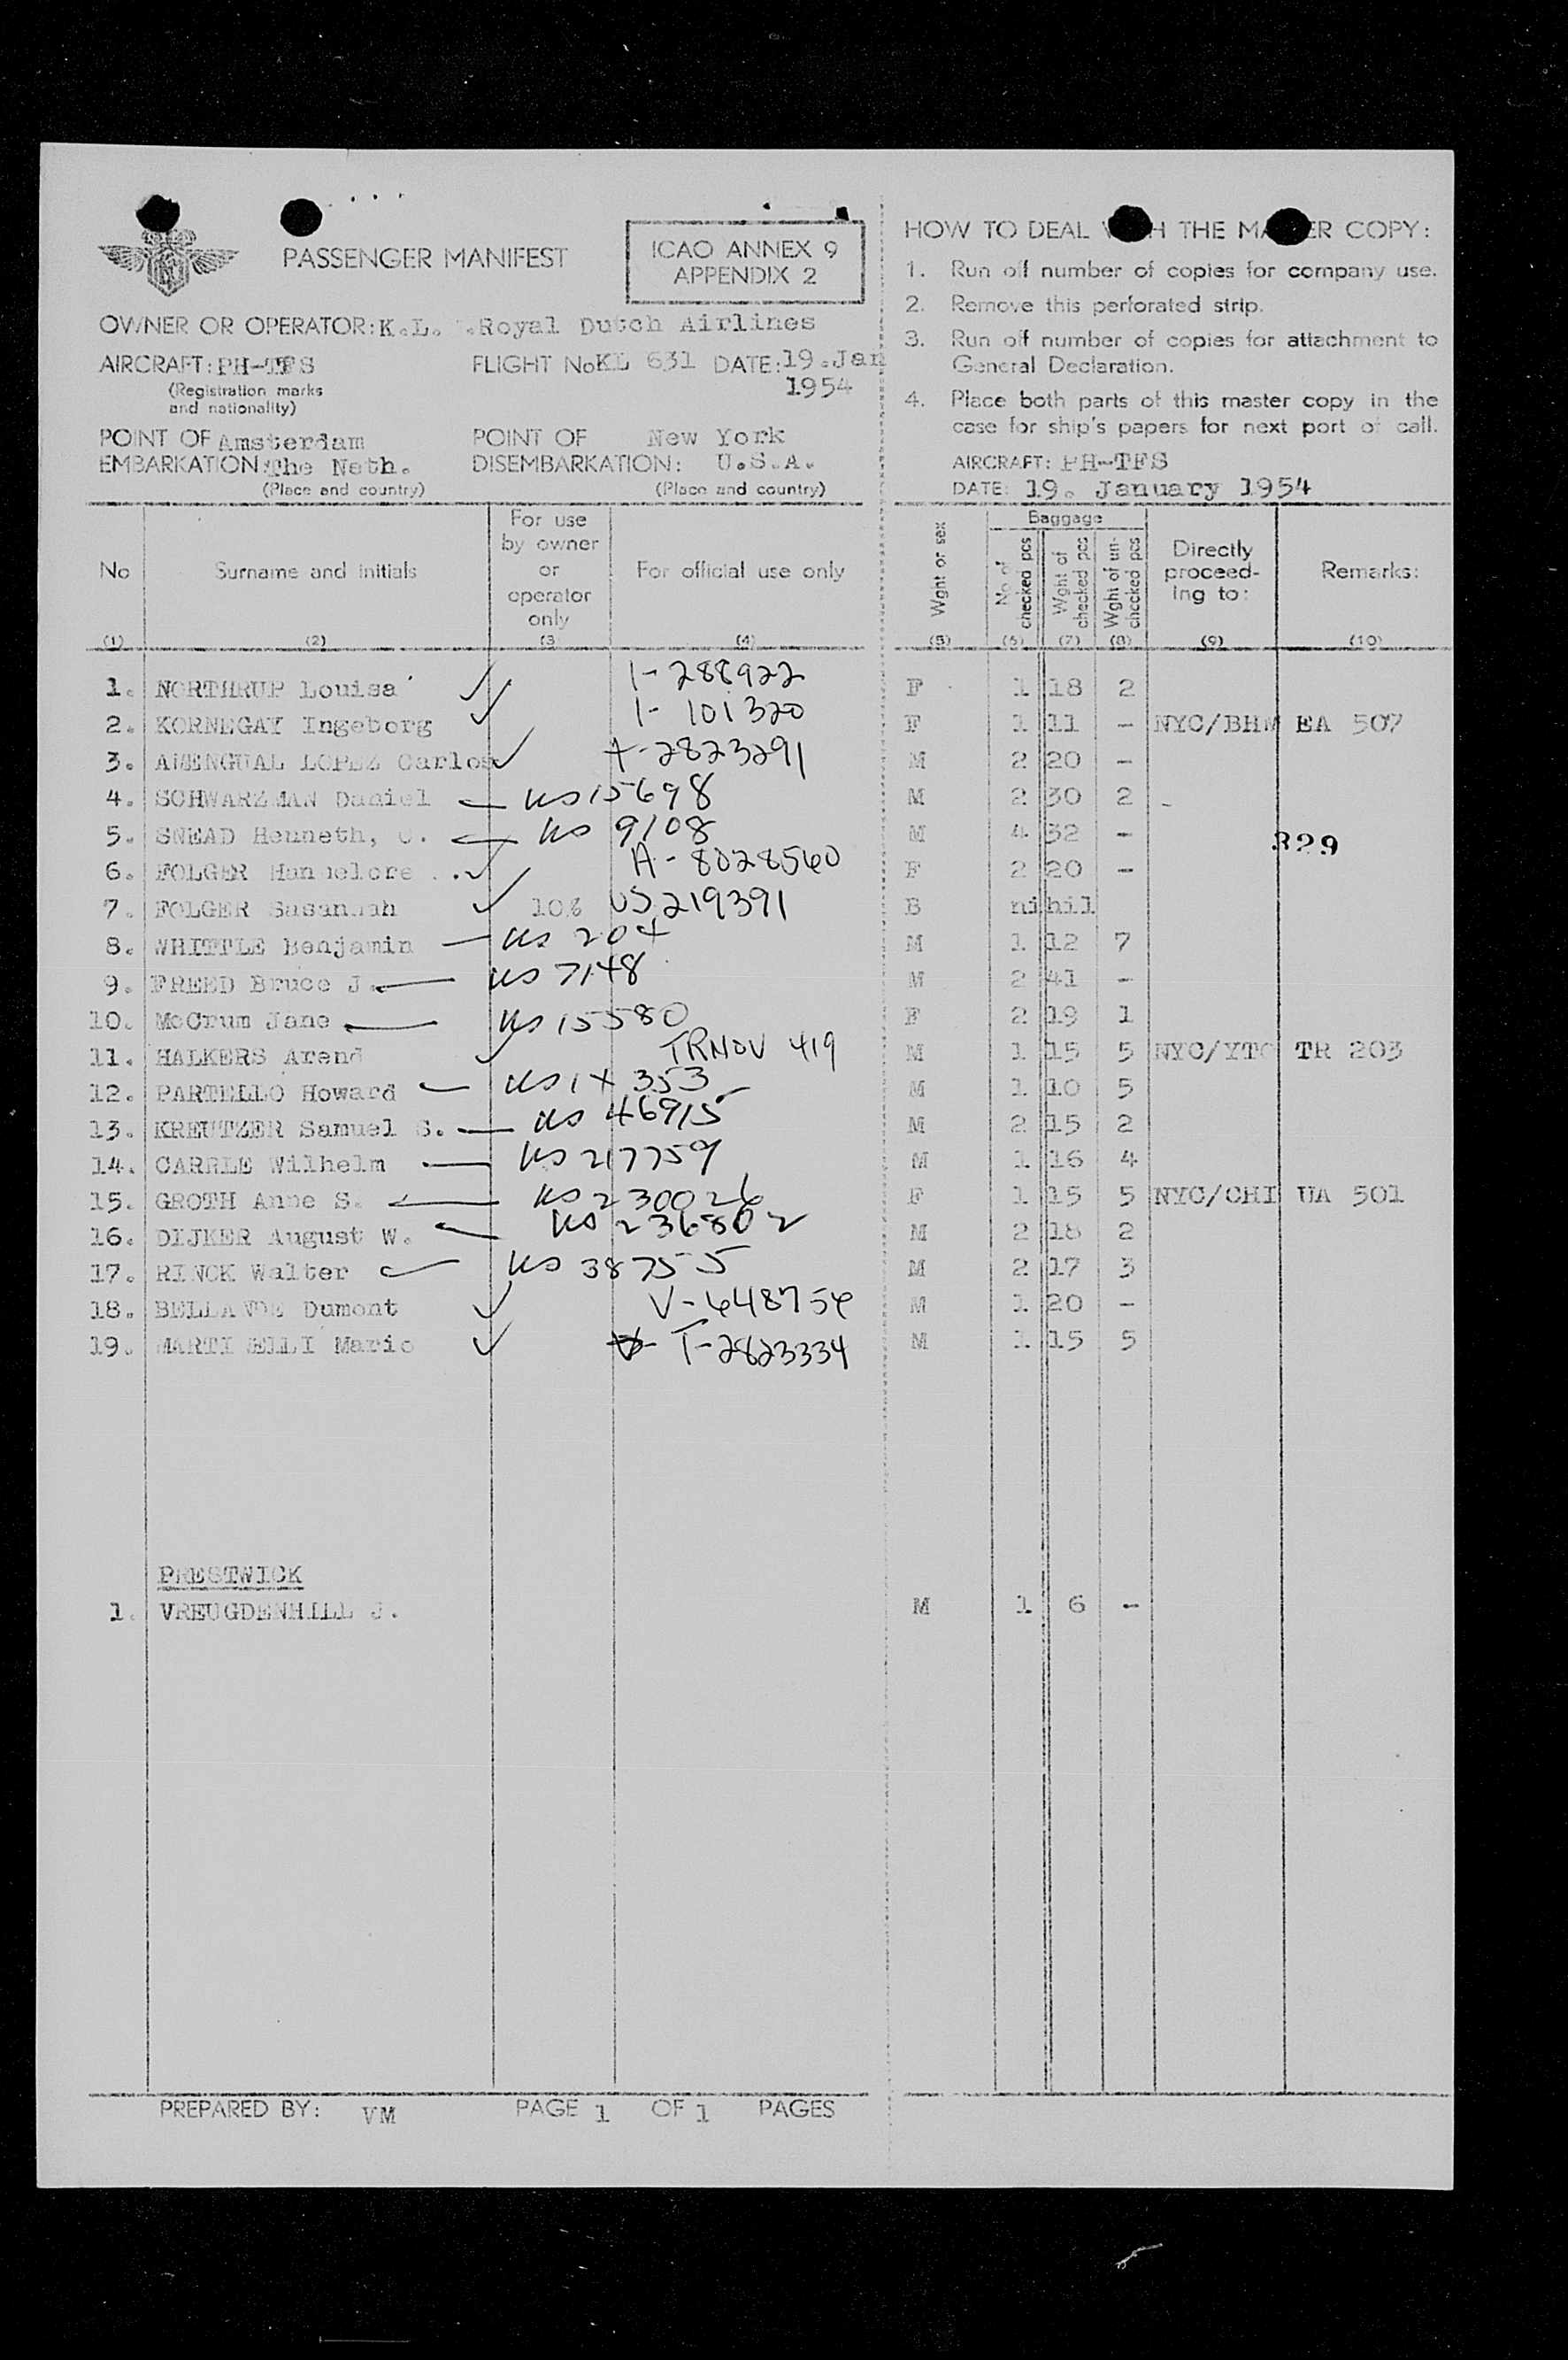 PASSENGER MANIFEST
ICAO ANNEX 9
APPENDIX 2
OWNER OR OPERATOR: K.L. .Royal Dutch Airlines
AIRCRAFT: PH-TFS FLIGHT No KL 631 DATE: 19.Jan
(Registration marks 1954
and nationality)
POINT OF Amsterdam POINT OF New York
EMBARKATION: The Neth. DISEMBARKATION: U.S.A.
(Place and country) (Place and country)
HOW TO DEAL THE COPY:
1. Run off number of copies for company use.
2. Remove this perforated strip.
3. Run off number of copies for attachment to
General Declaration.
4. Place both parts of this master copy in the
case for ship's papers for next port of call.
AIRCRAFT: PH-TFS
DATE: 19. January 1954
No Surname and initials For use by owner or operator only For official use only Wght or sex Baggage No of checked pcs Wght of checked pcs Wght of un-checked pcs Directly proceed-ing to: Remarks:
(1) (2) (3 (4) (5) (6) (7) (8) (9) (10)
1. NORTHRUP Louisa 1-288922 F 1 18 2
2. KORNEGAY Ingeborg 1- 101320 F 1 11 - NYC/BHM EA 507
3. AMENGUAL LOPEZ Carlos 2823291 M 2 20 -
4. SCHWARZMAN Daniel us 15698 M 2 30 2 -
5. SNEAD Henneth, us 9108 M 4 32 -
329
6. FOLGER Hannelore A-8028560 F 2 20 -
7. FOLGER Susannah 10% US 219391 B nihil
8. WHITTLE Benjamin us 204 M 1 12 7
9. FREED Bruce J. us 7148 M 2 41 -
10. McCrum Jane us 15580 F 2 19 1
11. HALKERS Arend TRNOV 419 M 1 15 5 NYC/YTO TR 203
12. PARTELLO Howard us 14353 M 1 10 5
13. KREUTZER Samuel S. us 46915 M 2 15 2
14. CARRLE Wilhelm us 217759 M 1 16 4
15. GROTH Anne S. us 230026 F 1 15 5 NYC/CHI UA 501
16. DIJKER August W. us 236802 M 2 18 2
17. RINCK Walter us 38755 M 2 17 3
18. BELLANDE Dumont V-6487 M 1 20 -
19. MARTINELLI Mario T-2823334 M 1 15 5
PRESTWICK
1. VREUGDENHILL J. M 1 6 -
PREPARED BY: VM PAGE 1 OF 1 PAGES